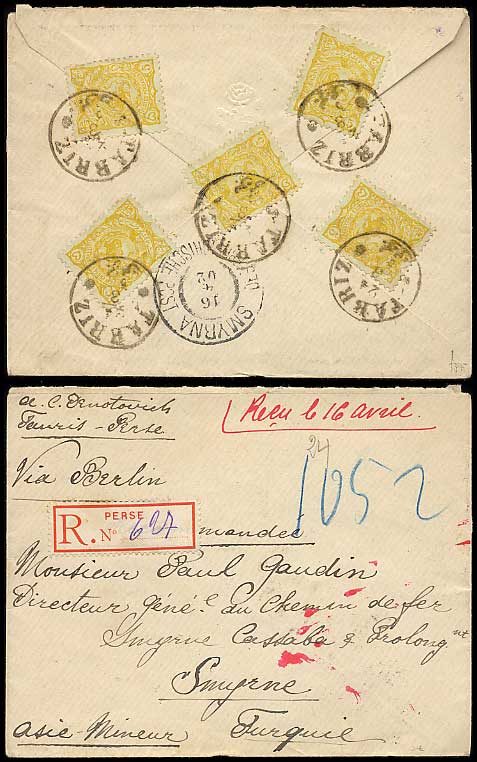 TABRIZ
TABRIZ
TABRIZ
TABRIZ
TABRIZ
SMYRNA
16
4
02
a. C. Denotovich
Tauris - Perse
Reçu le 16 avril.
24
Via Berlin
1652
PERSE
R. No 627
mandée
Monsieur Paul Gaudin
Directeur Géné-l du Chemin de fer
Smyrne Cassaba & Prolongnt
Smyrne
Asie-Mineur Turquie